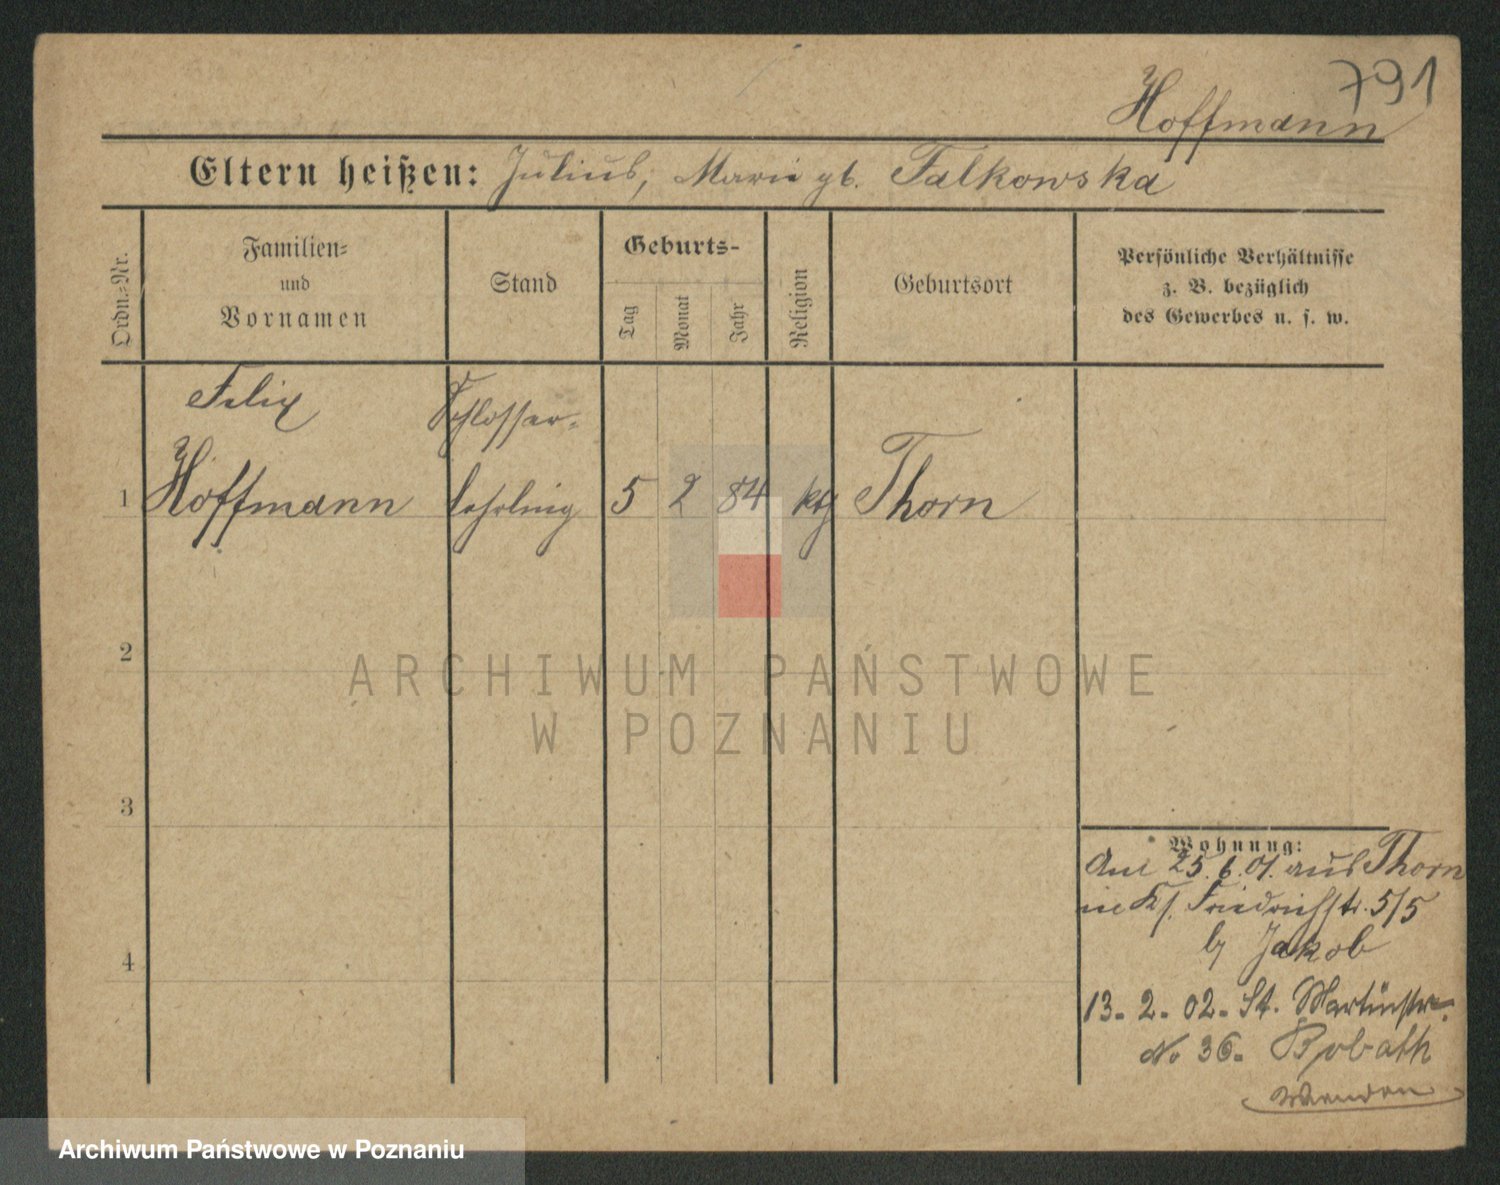 791
Hoffmann
Eltern heißen: Julius, Marie gb. Falkowska
Ordn.-Nr.
Familien-
und
Vornamen
Stand
Geburts-
Tag
Monat
Jahr
Religion
Geburtsort
Persönliche Verhältnisse
z. B. bezüglich
des Gewerbes u. s. w.
Felix
Schlosser-
1 Hoffmann lehrling 5 2 84 ktg Thorn
2
ARCHIWUM PAŃSTWOWE
W POZNANIU
3
Wohnung:
25.6.01. aus Thorn
Friedrichstr. 5/5
b/ Jakob
4
13-2-02- St. Martinstr.
No 36-
Wenden
Archiwum Państwowe w Poznaniu